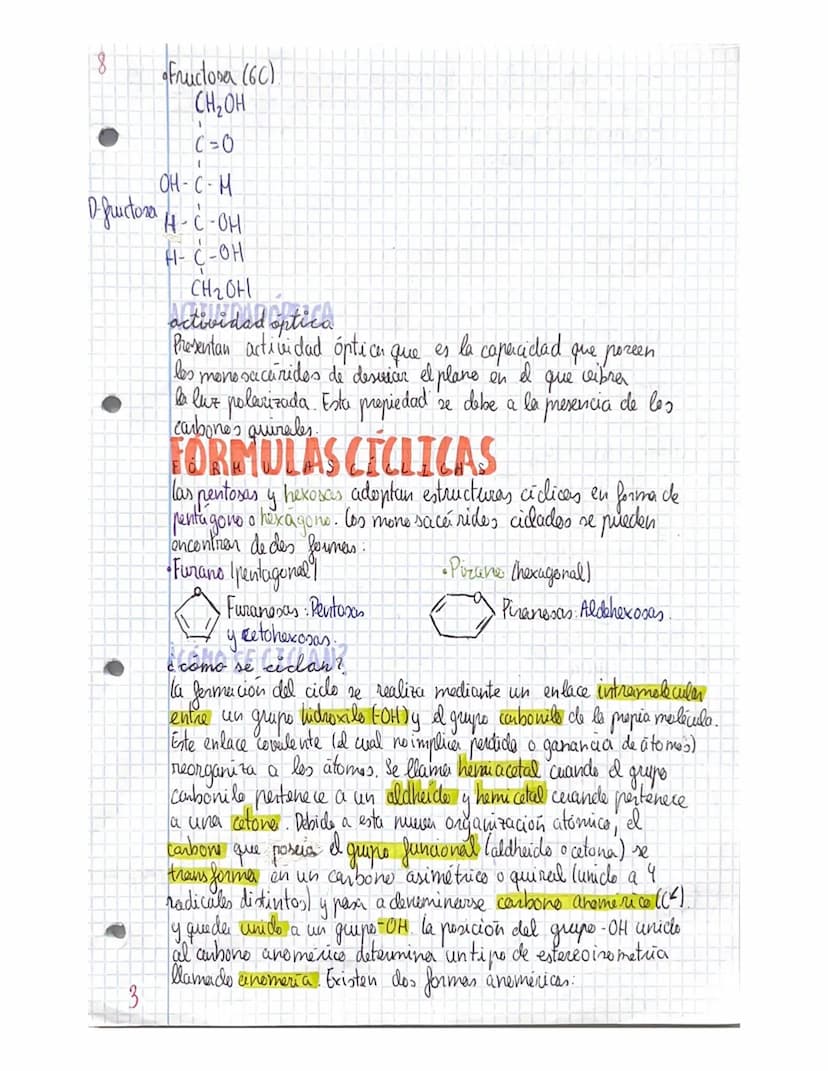 8
•Fructosa (6C)
CH₂OH
C=O
OH-C-H
D-fructosa
H-C-OH
H-C-OH
CH₂OH
ACTIVIDAD ÓPTICA
actividad optica
Presentan actividad óptica que es la capacidad que poseen
los monosacáridos de desviar el plano en el que vibra
la luz polarizada. Esta propiedad se debe a la presencia de los
carbonos quirales.
FÓRMULAS CÍCLICAS
FÓRMULAS CÍCLICAS
las pentosas y hexosas adoptan estructuras cíclicas en forma de
pentágono o hexágono. Los monosacáridos ciclados se pueden
encontrar de dos formas:
•Furano (pentagonal)
•Pirano (hexagonal)
O
Furanosas: Pentosas
y cetohexosas.
O
Piranosas: Aldohexosas.
¿CÓMO SE CICLAN?
¿cómo se ciclan?
la formación del ciclo se realiza mediante un enlace intramolecular
entre un grupo hidroxilo (-OH) y el grupo carbonilo de la propia molécula.
Este enlace covalente (el cual no implica perdida o ganancia de átomos)
reorganiza a los átomos. Se llama hemiacetal cuando el grupo
carbonilo pertenece a un aldheído y hemicetal cuando pertenece
a una cetona. Debido a esta nueva organización atómica, el
carbono que poseía el grupo funcional (aldheído o cetona) se
transforma en un carbono asimétrico o quiral (unido a 4
radicales distintos) y pasa a denominarse carbono anomérico
y queda unido a un grupo -OH. la posición del grupo -OH unido
al carbono anomérico determina un tipo de estereoisometría
llamada anomería. Existen dos formas anoméricas:
3